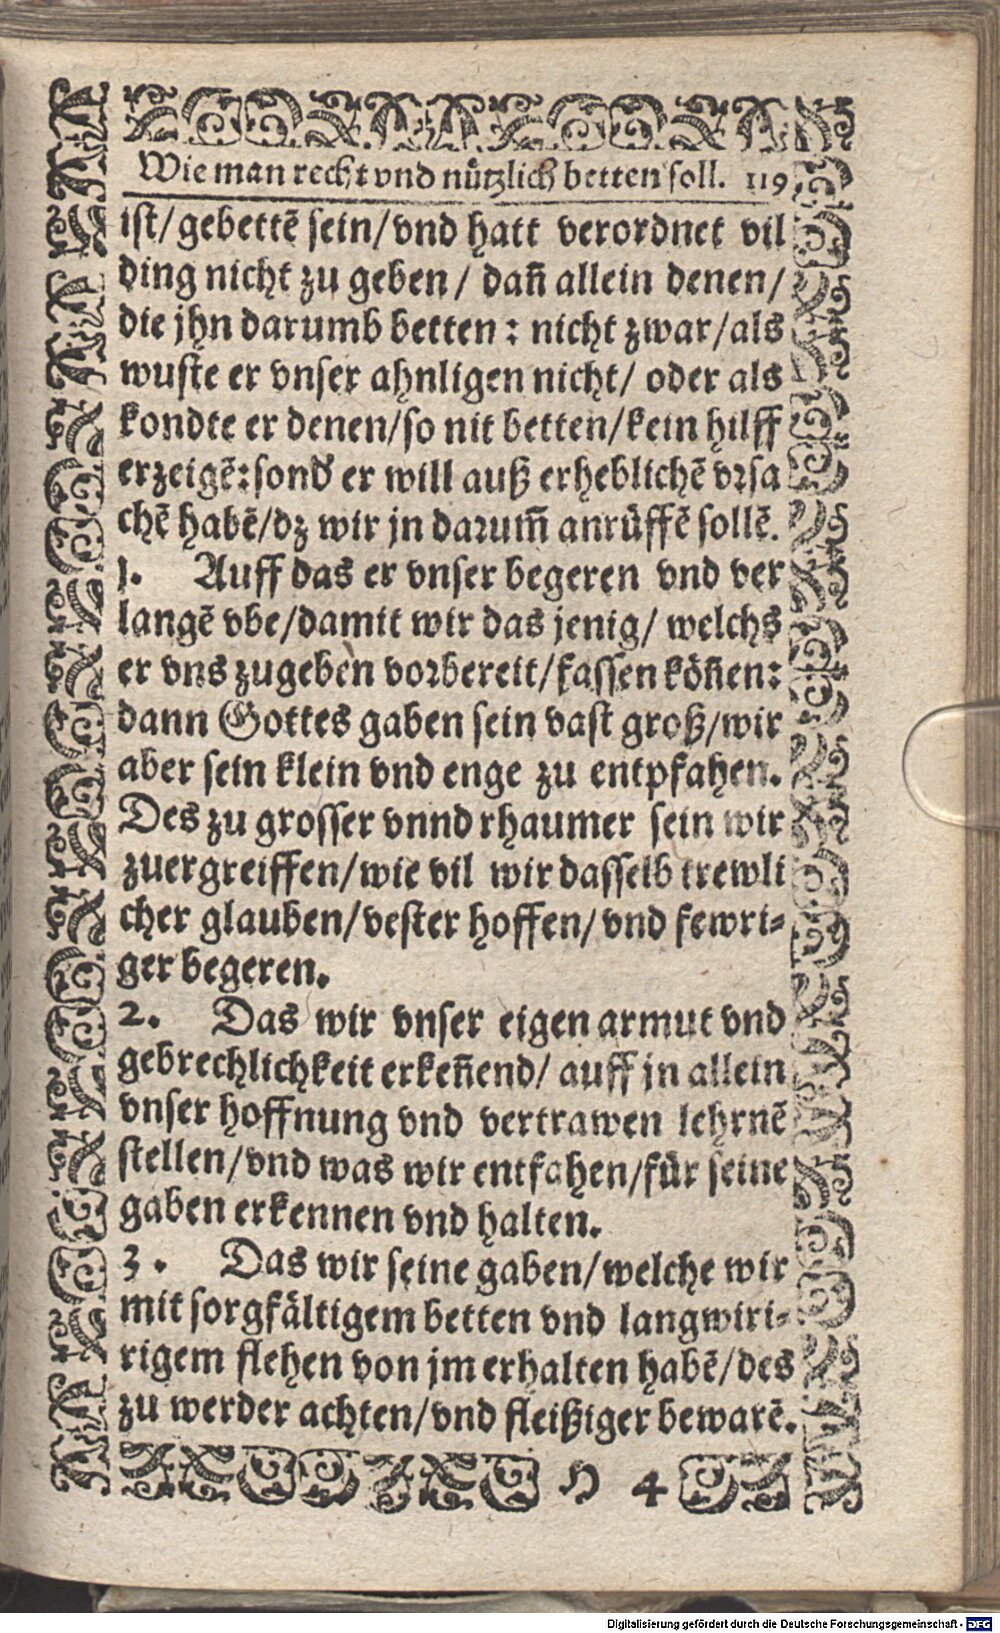 Wie man recht vnd nützlich betten soll. 119
ist/ gebettē sein/ vnd hatt verordnet vil
ding nicht zu geben/ dañ allein denen/
die jhn darumb betten: nicht zwar/ als
wuste er vnser ahnligen nicht/ oder als
kondte er denen/ so nit betten/ kein hilff
erzeigē: sond̉ er will auß erheblichē vrsa
chē habē/ dz wir jn darum̄ anrüffē sollē.
1. Auff das er vnser begeren vnd ver
langē vbe/ damit wir das jenig/ welchs
er vns zugeben vorbereit/ fassen köñen:
dann Gottes gaben sein vast groß/ wir
aber sein klein vnd enge zu entpfahen.
Des zu grosser vnnd rhaumer sein wir
zuergreiffen/ wie vil wir dasselb trewli
cher glauben/ vester hoffen/ vnd fewri-
ger begeren.
2. Das wir vnser eigen armut vnd
gebrechlichkeit erkeñend/ auff jn allein
vnser hoffnung vnd vertrawen lehrnē
stellen/ vnd was wir entfahen/ für seine
gaben erkennen vnd halten.
3. Das wir seine gaben/ welche wir
mit sorgfältigem betten vnd langwiri-
rigem flehen von jm erhalten habē/ des
zu werder achten/ vnd fleißiger bewarē.
H 4
Digitalisierung gefördert durch die Deutsche Forschungsgemeinschaft - DFG